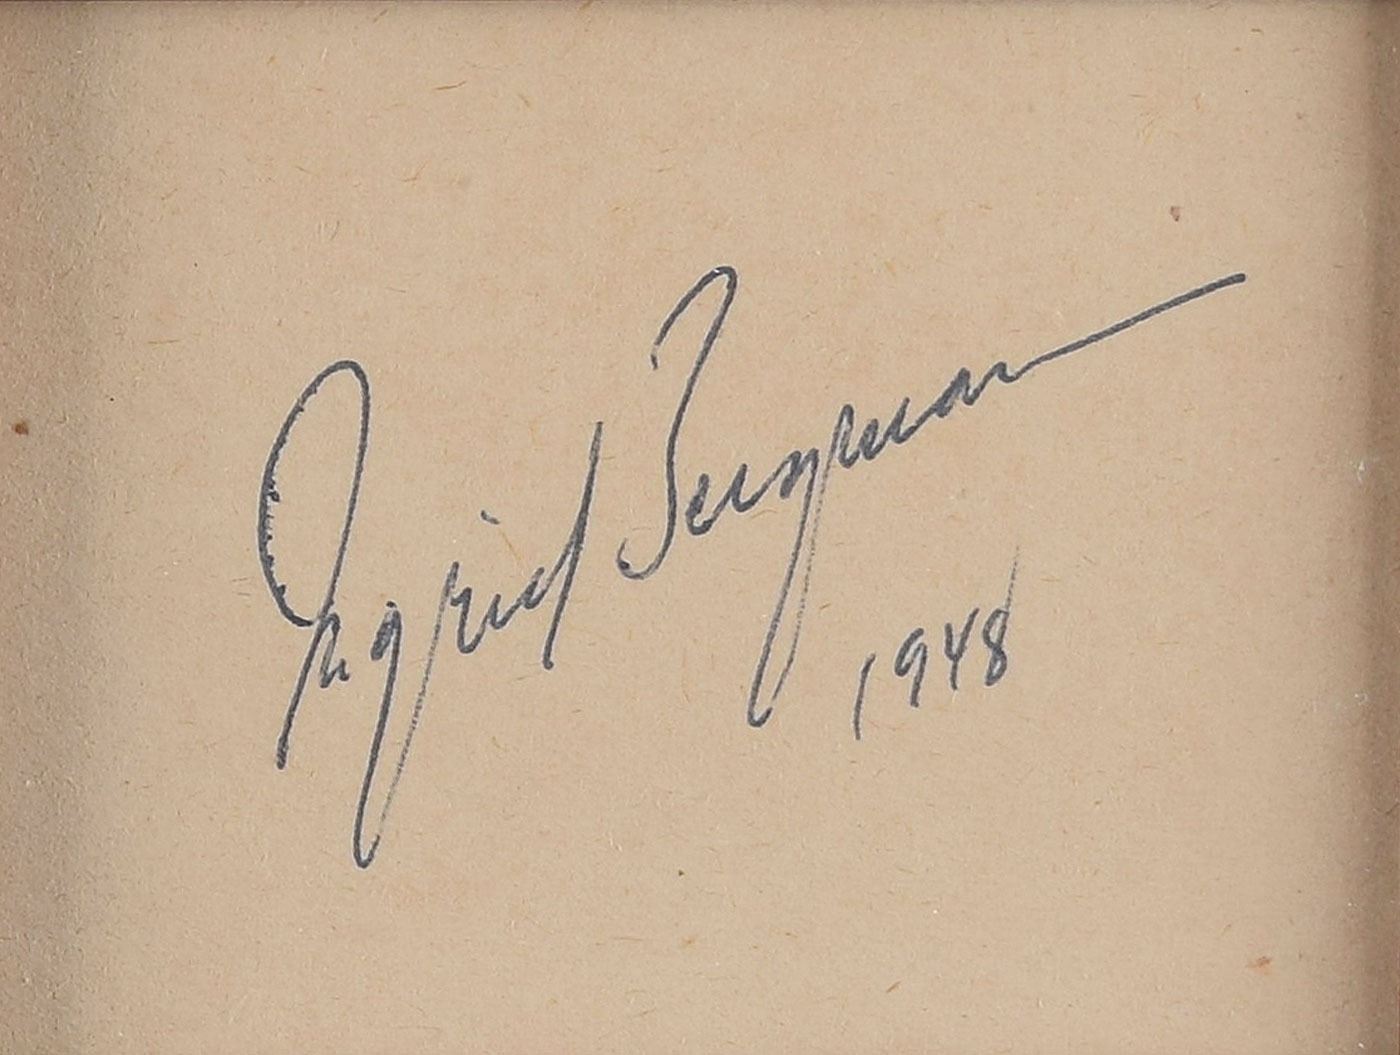 Ingrid Bergman
1948